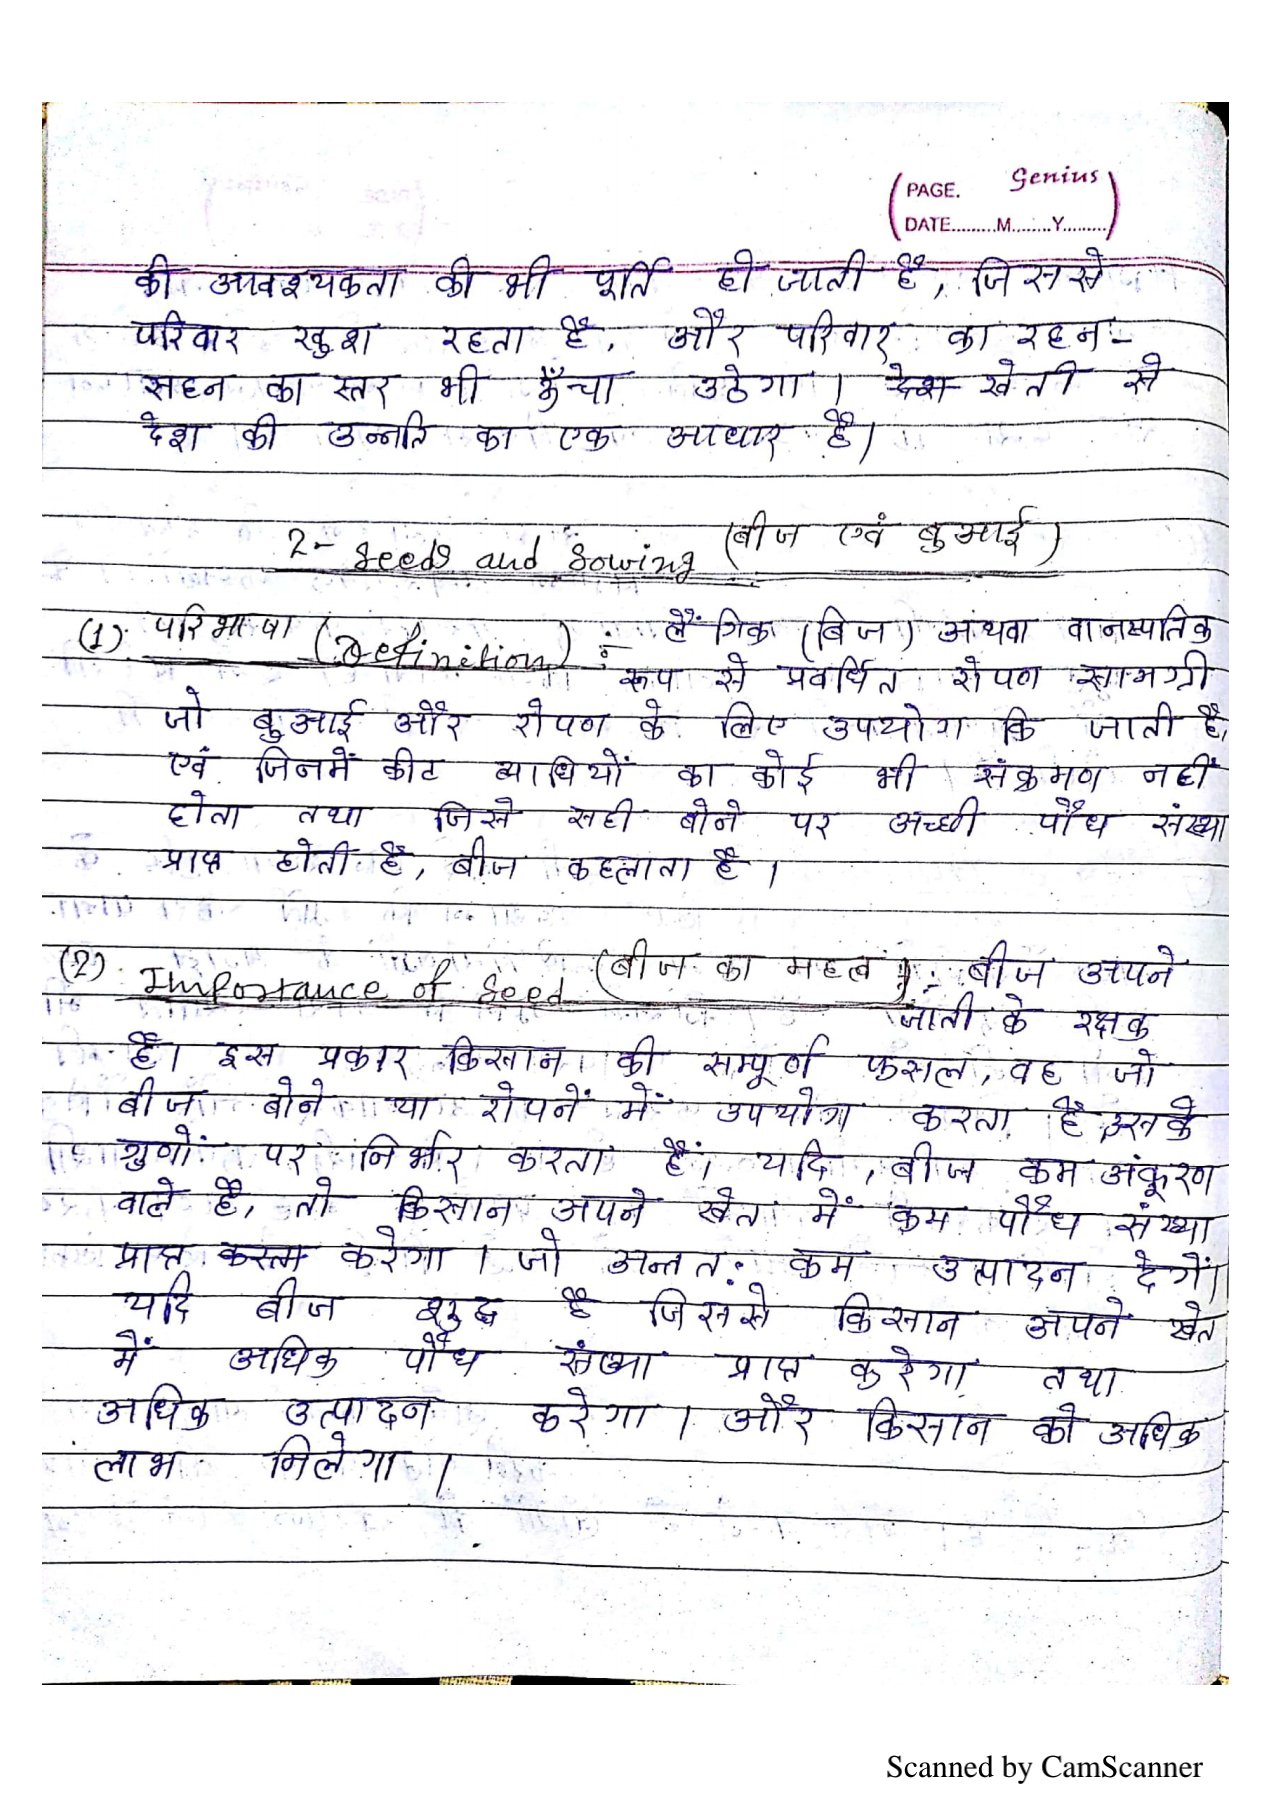 PAGE. Genius
DATE.........M........Y.........
की आवश्यकता की भी पूर्ति हो जाती है, जिससे
परिवार खुश रहता है, और परिवार का रहन-
सहन का स्तर भी ऊँचा उठेगा। देश खेती से
देश की उन्नति का एक आधार है।
2- Seeds and Sowing (बीज एवं बुआई)
(1). परिभाषा (Definition) :- लैंगिक (बिज) अथवा वानस्पतिक
रूप से प्रवर्धित रोपण सामग्री
जो बुआई और रोपण के लिए उपयोग कि जाती है,
एवं जिनमें कीट व्याधियों का कोई भी संक्रमण नहीं
होता तथा जिसे सही बोने पर अच्छी पौध संख्या
प्राप्त होती है, बीज कहलाता है।
(2). Importance of Seed (बीज का महत्व) :- बीज अपने
जाती के रक्षक
है। इस प्रकार किसान की सम्पूर्ण फसल, वह जो
बीज बोने या रोपनें में उपयोग करता है, उसके
गुणों पर निर्भर करता है, यदि, बीज कम अंकूरण
वाले है, तो किसान अपने खेत में कम पौध संख्या
प्राप्त करेगा। जो अन्ततः कम उत्पादन देगें।
यदि बीज शुद्ध है जिससे किसान अपने खेत
में अधिक पौध संख्या प्राप्त करेगा तथा
अधिक उत्पादन करेगा। और किसान को अधिक
लाभ मिलेगा।
Scanned by CamScanner